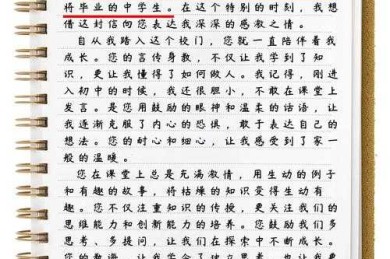 将毕业的中学生。在这个特别的时刻，我想
借这封信向您表达我深深的感激之情。
自从我踏入这个校门，您就一直陪伴着我
成长。您的言传身教，不仅让我学到了知
识，更让我懂得了如何做人。我记得，刚进
入初中的时候，我还很胆小，不敢在课堂上
发言。是您用鼓励的眼神和温柔的话语，让
我逐渐克服了内心的恐惧，敢于表达自己的
想法。您的耐心和细心，让我感受到了家一
般的温暖。
您在课堂上总是充满激情，用生动的例子
和有趣的故事，将枯燥的知识变得生动有
趣。您不仅注重知识的传授，更关注我们的
思维能力和创新能力的培养。您鼓励我们多
思考、多提问，让我们在探索中不断成长。
您的教诲，让我学会了独立思考，也让我